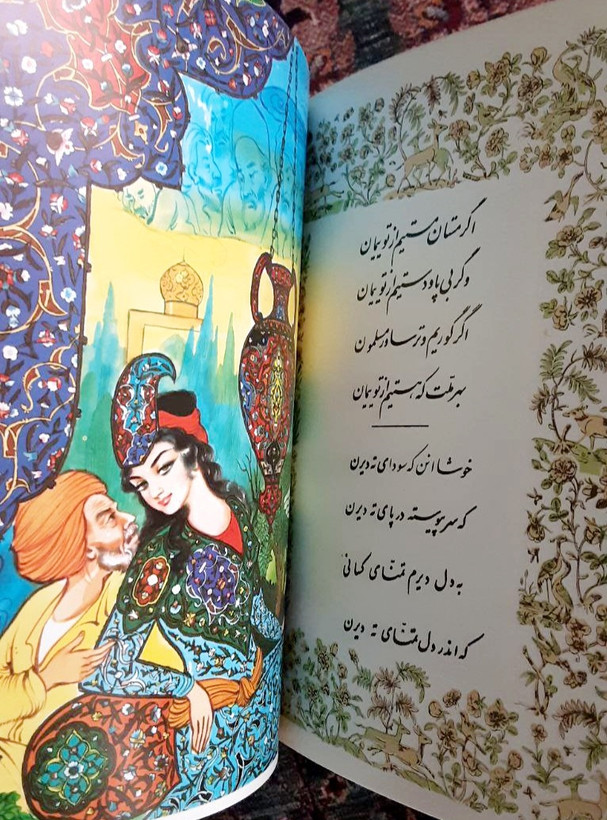 اگر مستان مستیم از تو ایمان
وگر بی پا و دستیم از تو ایمان
اگر گوریم و ترسا ور مسلمون
بهر ملت که هستیم از تو ایمان
خوشا انن که سودای ته دیرن
که سر پیوسته در پای ته دیرن
به دل دیرم تمنای کسانی
که اندر دل تمنای ته دیرن